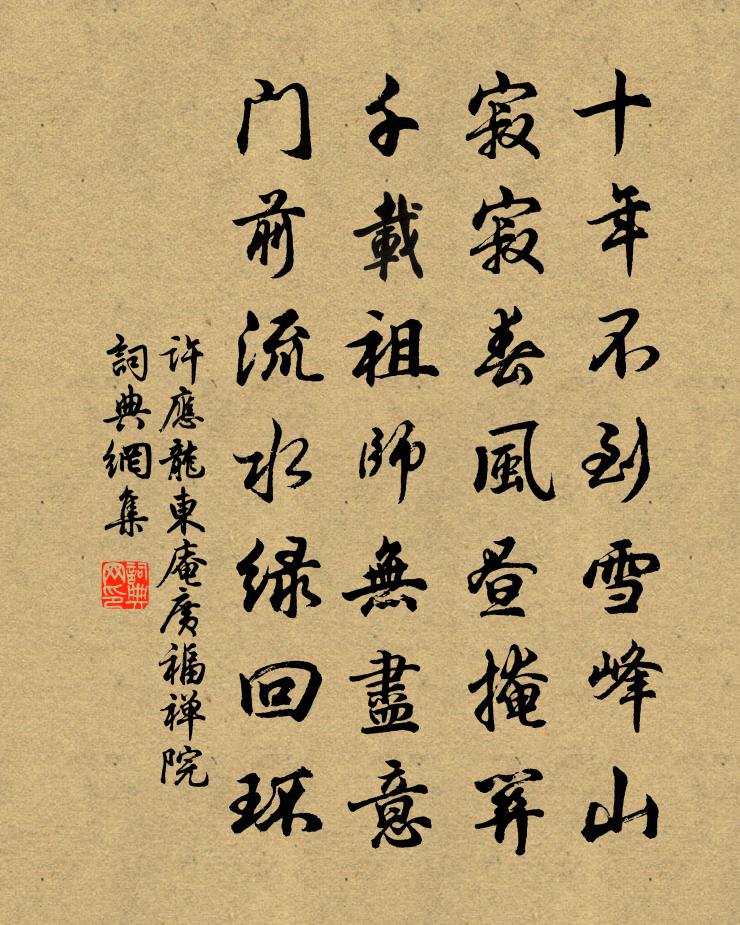 十年不到雪峰山
寂寂春風昼掩関
千載祖師無盡意
门前流水緑回环
許應龍東庵廣福禅院
詞典網集
詞典网印